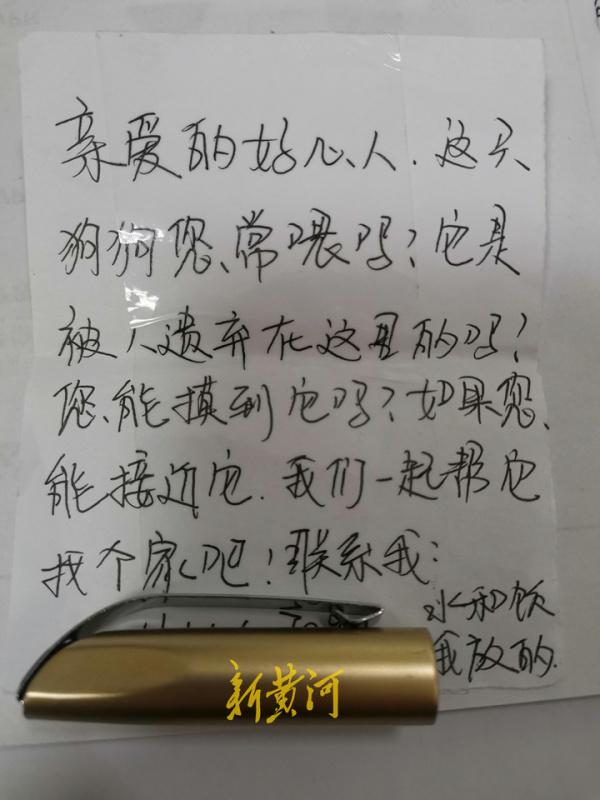 亲爱的好心人.这只
狗狗您常喂吗?它是
被人遗弃在这里的吗?
您能摸到它吗?如果您
能接近它.我们一起帮它
找个家吧!联系我:
水和饭
我放的.
新黄河